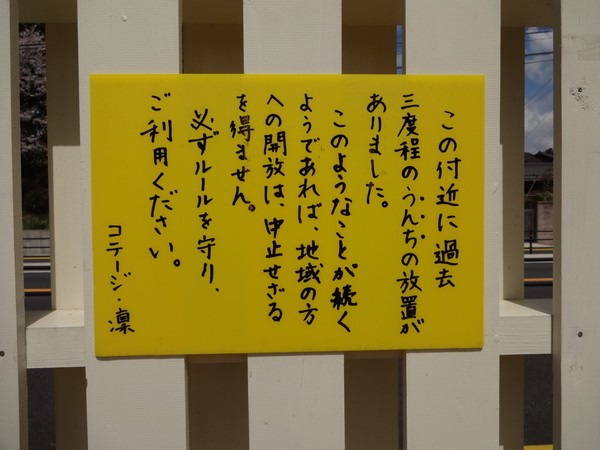 この付近に過去
三度程のうんちの放置が
ありました。
このようなことが続く
ようであれば、地域の方
への開放は、中止せざる
を得ません。
必ずルールを守り、
ご利用ください。
コテージ・凛